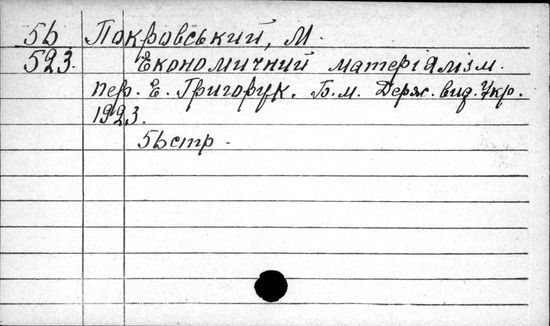 5Ь Покровський, М.
523. Економичний матеріялізм.
пер. Е. Григорук. Б.м. Держ. вид. Укр.
1923.
5Ьстр.